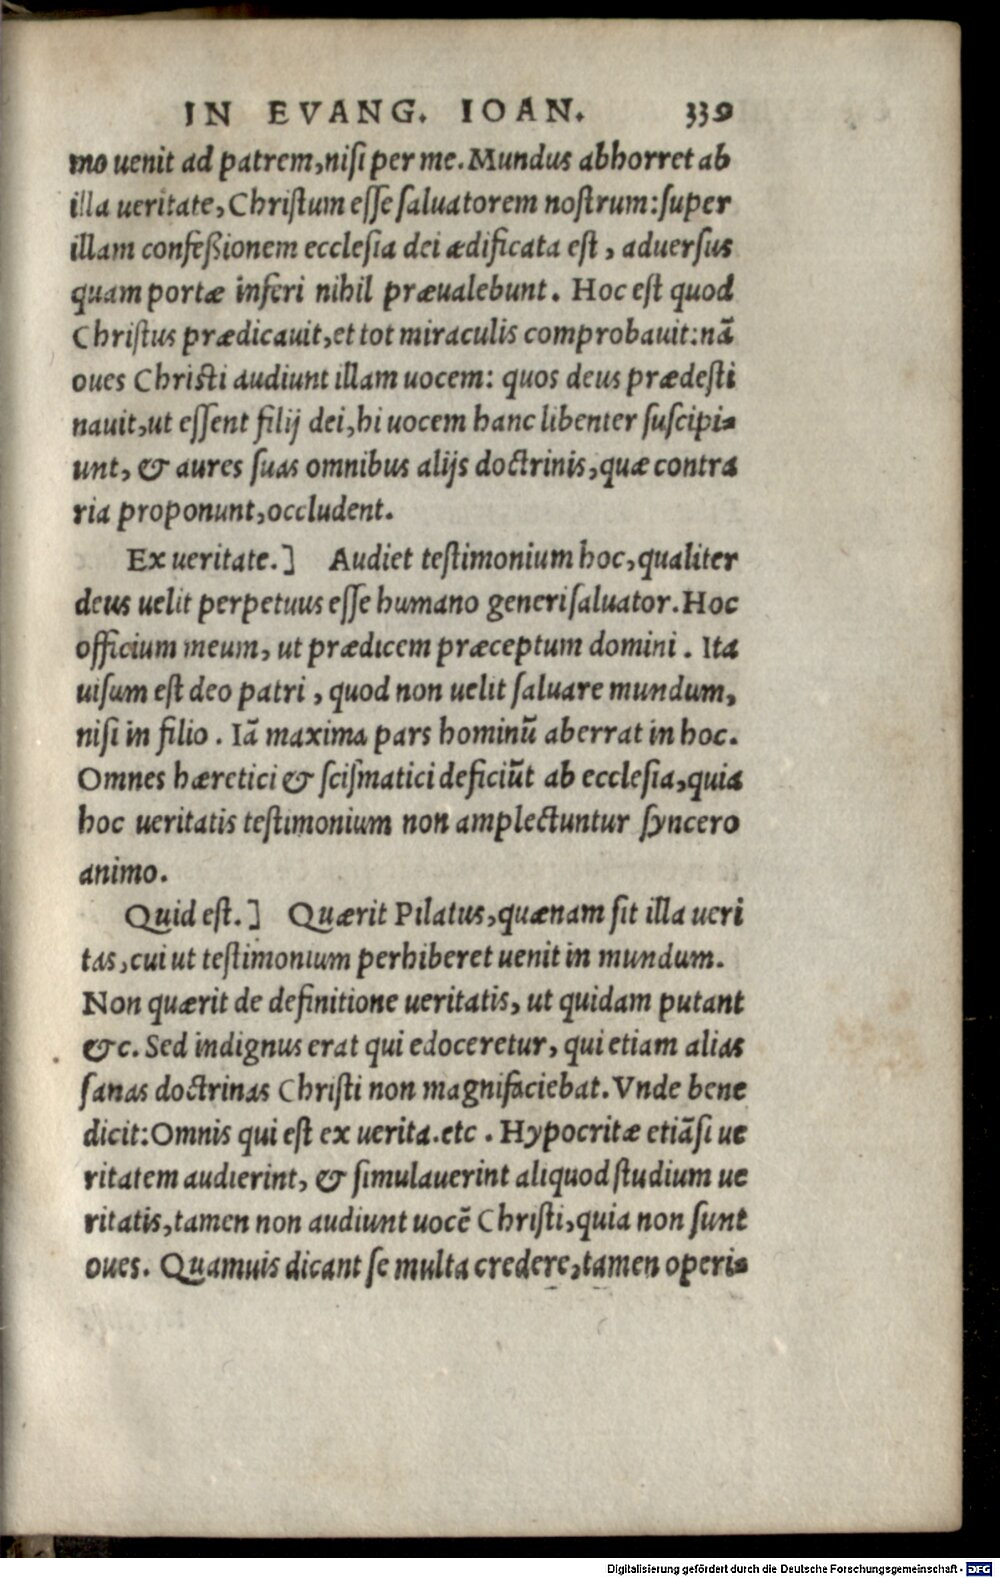 IN EVANG. IOAN. 339
mo uenit ad patrem, nisi per me. Mundus abhorret ab
illa ueritate, Christum esse saluatorem nostrum: super
illam confeßionem ecclesia dei ædificata est, aduersus
quam portæ inferi nihil præualebunt. Hoc est quod
Christus prædicauit, et tot miraculis comprobauit: nã
oues Christi audiunt illam uocem: quos deus prædesti
nauit, ut essent filij dei, hi uocem hanc libenter suscipi-
unt, & aures suas omnibus alijs doctrinis, quæ contra
ria proponunt, occludent.
Ex ueritate.] Audiet testimonium hoc, qualiter
deus uelit perpetuus esse humano generi saluator. Hoc
officium meum, ut prædicem præceptum domini. Ita
uisum est deo patri, quod non uelit saluare mundum,
nisi in filio. Iã maxima pars hominũ aberrat in hoc.
Omnes hæretici & scismatici deficiũt ab ecclesia, quia
hoc ueritatis testimonium non amplectuntur syncero
animo.
Quid est.] Quærit Pilatus, quænam sit illa ueri
tas, cui ut testimonium perhiberet uenit in mundum.
Non quærit de definitione ueritatis, ut quidam putant
&c. Sed indignus erat qui edoceretur, qui etiam alias
sanas doctrinas Christi non magnifaciebat. Vnde bene
dicit: Omnis qui est ex uerita. etc. Hypocritæ etiãsi ue
ritatem audierint, & simulauerint aliquod studium ue
ritatis, tamen non audiunt uocẽ Christi, quia non sunt
oues. Quamuis dicant se multa credere, tamen operi-
Digitalisierung gefördert durch die Deutsche Forschungsgemeinschaft - DFG